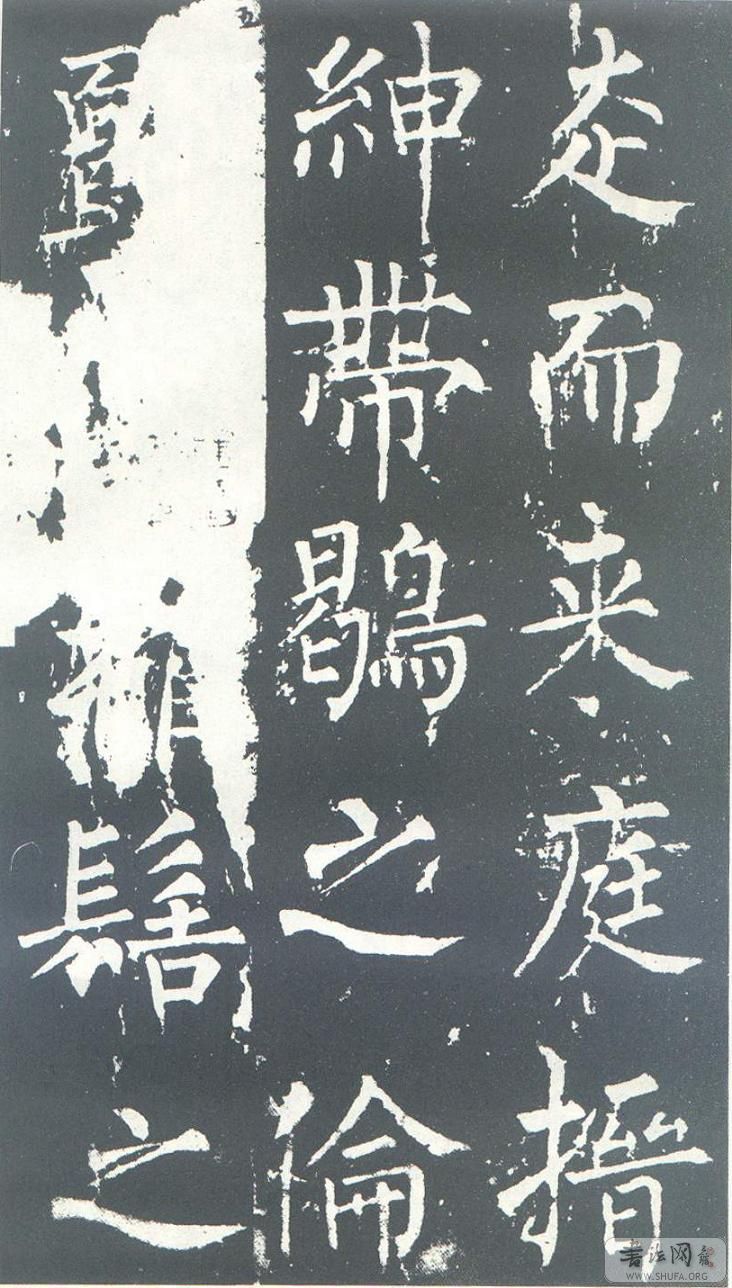 走而来庭搢
紳帶鶡之倫
髺之
五
書法网
WWW.SHUFA.ORG